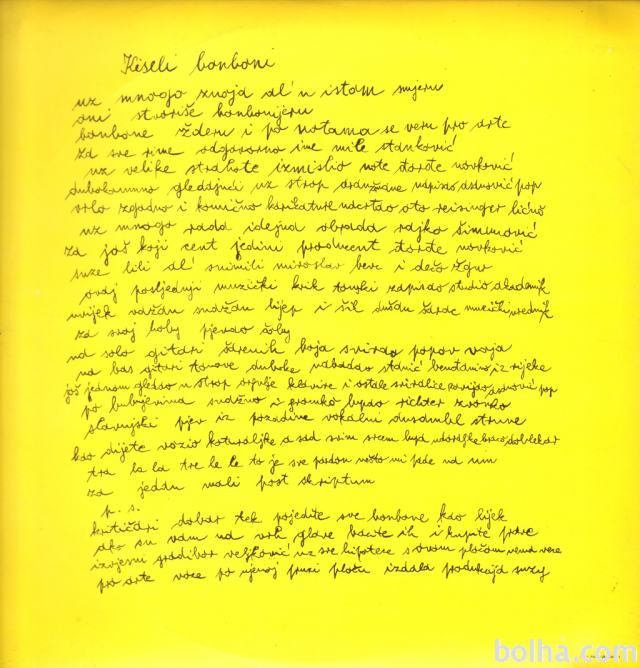 Kiseli bonboni
uz mnogo znoja al' u istom smjeru
oni stvoriše bonbonijeru
bonbone žderu i po notama se veru pro arte
za sve rime odgovorno ime mile stanković
uz velike strahote izmislio note đorđe novković
dubokoumno gledajući uz strop aranžmane napisao asanović pop
vrlo zgodno i komično karikature nacrtao oto reisinger lično
uz mnogo rada idejna obrada rajko šimunović
za još koji cent jedini producent đorđe novković
suze lili al' snimili miroslav berc i dečo žgur
ovaj posljednji muzički krik tonski zapisao studio akademik
uvijek važan snažan lijep i šik dušan šarac muzički urednik
za svoj hoby pjevao čoby
na solo gitari šarenih boja svirao popov voja
na bas gitari tonove duboke nabadao stanić beniamino iz rijeke
još jednom gledao u strop orgulje klavire i ostale sviralice asanović pop
po bubnjevima snažno i gromko lupao richter zvonko
slavujski pjev iz pozadine vokalni ansambl strune
kao dijete vozio koturaljke a sad svim srcem lupa udaraljke braco doblekar
tra la la tre le le to je sve pardon nešto mi pade na um
za jedan mali post skriptum
p. s.
kritičari dobar tek pojedite sve bonbone kao lijek
ako su vam na vrh glave bacite ih i kupite prave
izvjesni gradibor veljković uz sve hipoteze s ovom pločom nema veze
pro arte voze po njenoj prvi ploču izdala produkcija suzy
bolha.com